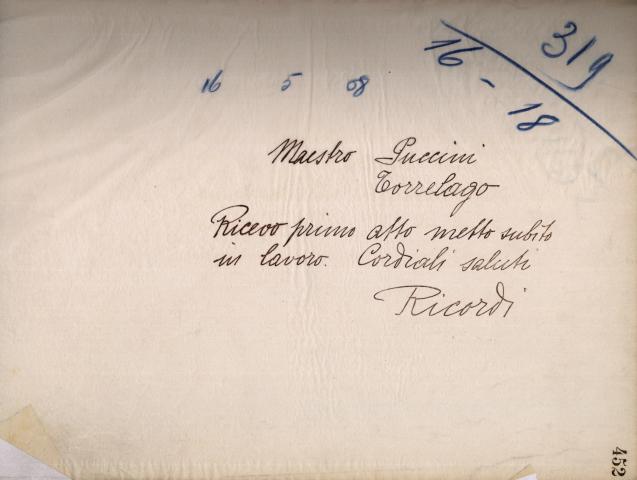 319
16 - 18
16 5 08
Maestro Puccini
Torrelago
Ricevo primo atto metto subito
in lavoro. Cordiali saluti
Ricordi
452